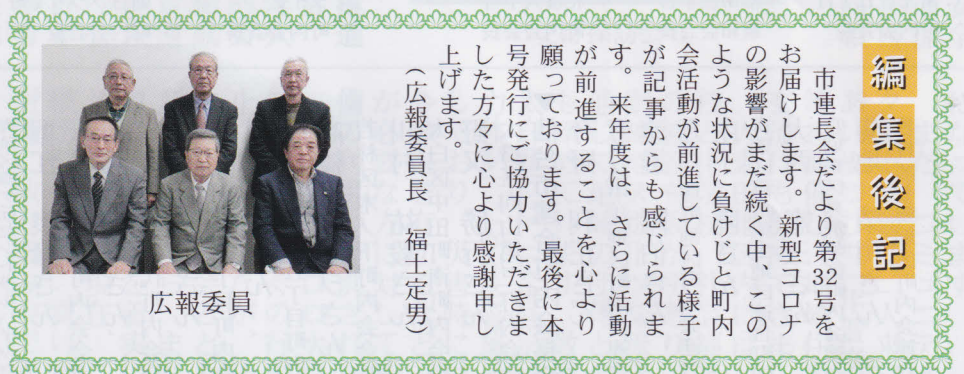 編集後記
市連長会だより第32号を
お届けします。新型コロナ
の影響がまだ続く中、この
ような状況に負けじと町内
会活動が前進している様子
が記事からも感じられま
す。来年度は、さらに活動
が前進することを心より
願っております。最後に本
号発行にご協力いただきま
した方々に心より感謝申し
上げます。
(広報委員長 福士定男)
広報委員